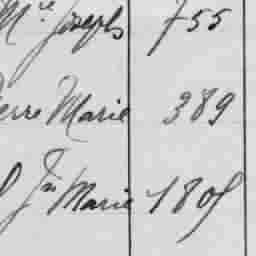 Mie Joseph 755
erre Marie 389
Jn Marie 1805